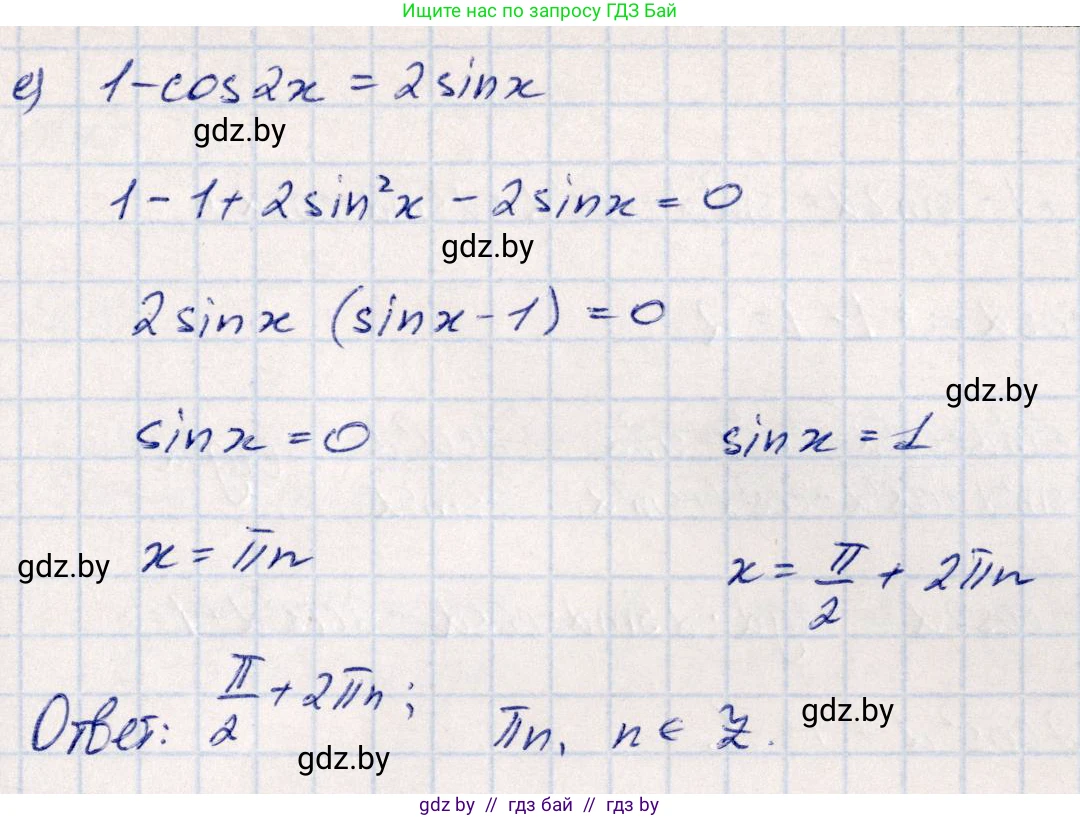 Ищите нас по запросу ГДЗ Бай
е) 1-cos2x = 2sinx
gdz.by
1-1+2sin²x - 2sinx = 0
gdz.by
2sinx (sinx-1) = 0
gdz.by
sinx = 0 sinx = 1
gdz.by x = πn x = π/2 + 2πn
Ответ: π/2 + 2πn; πn, n ∈ Z.
gdz.by
gdz.by
gdz by // гдз бай // гдз by